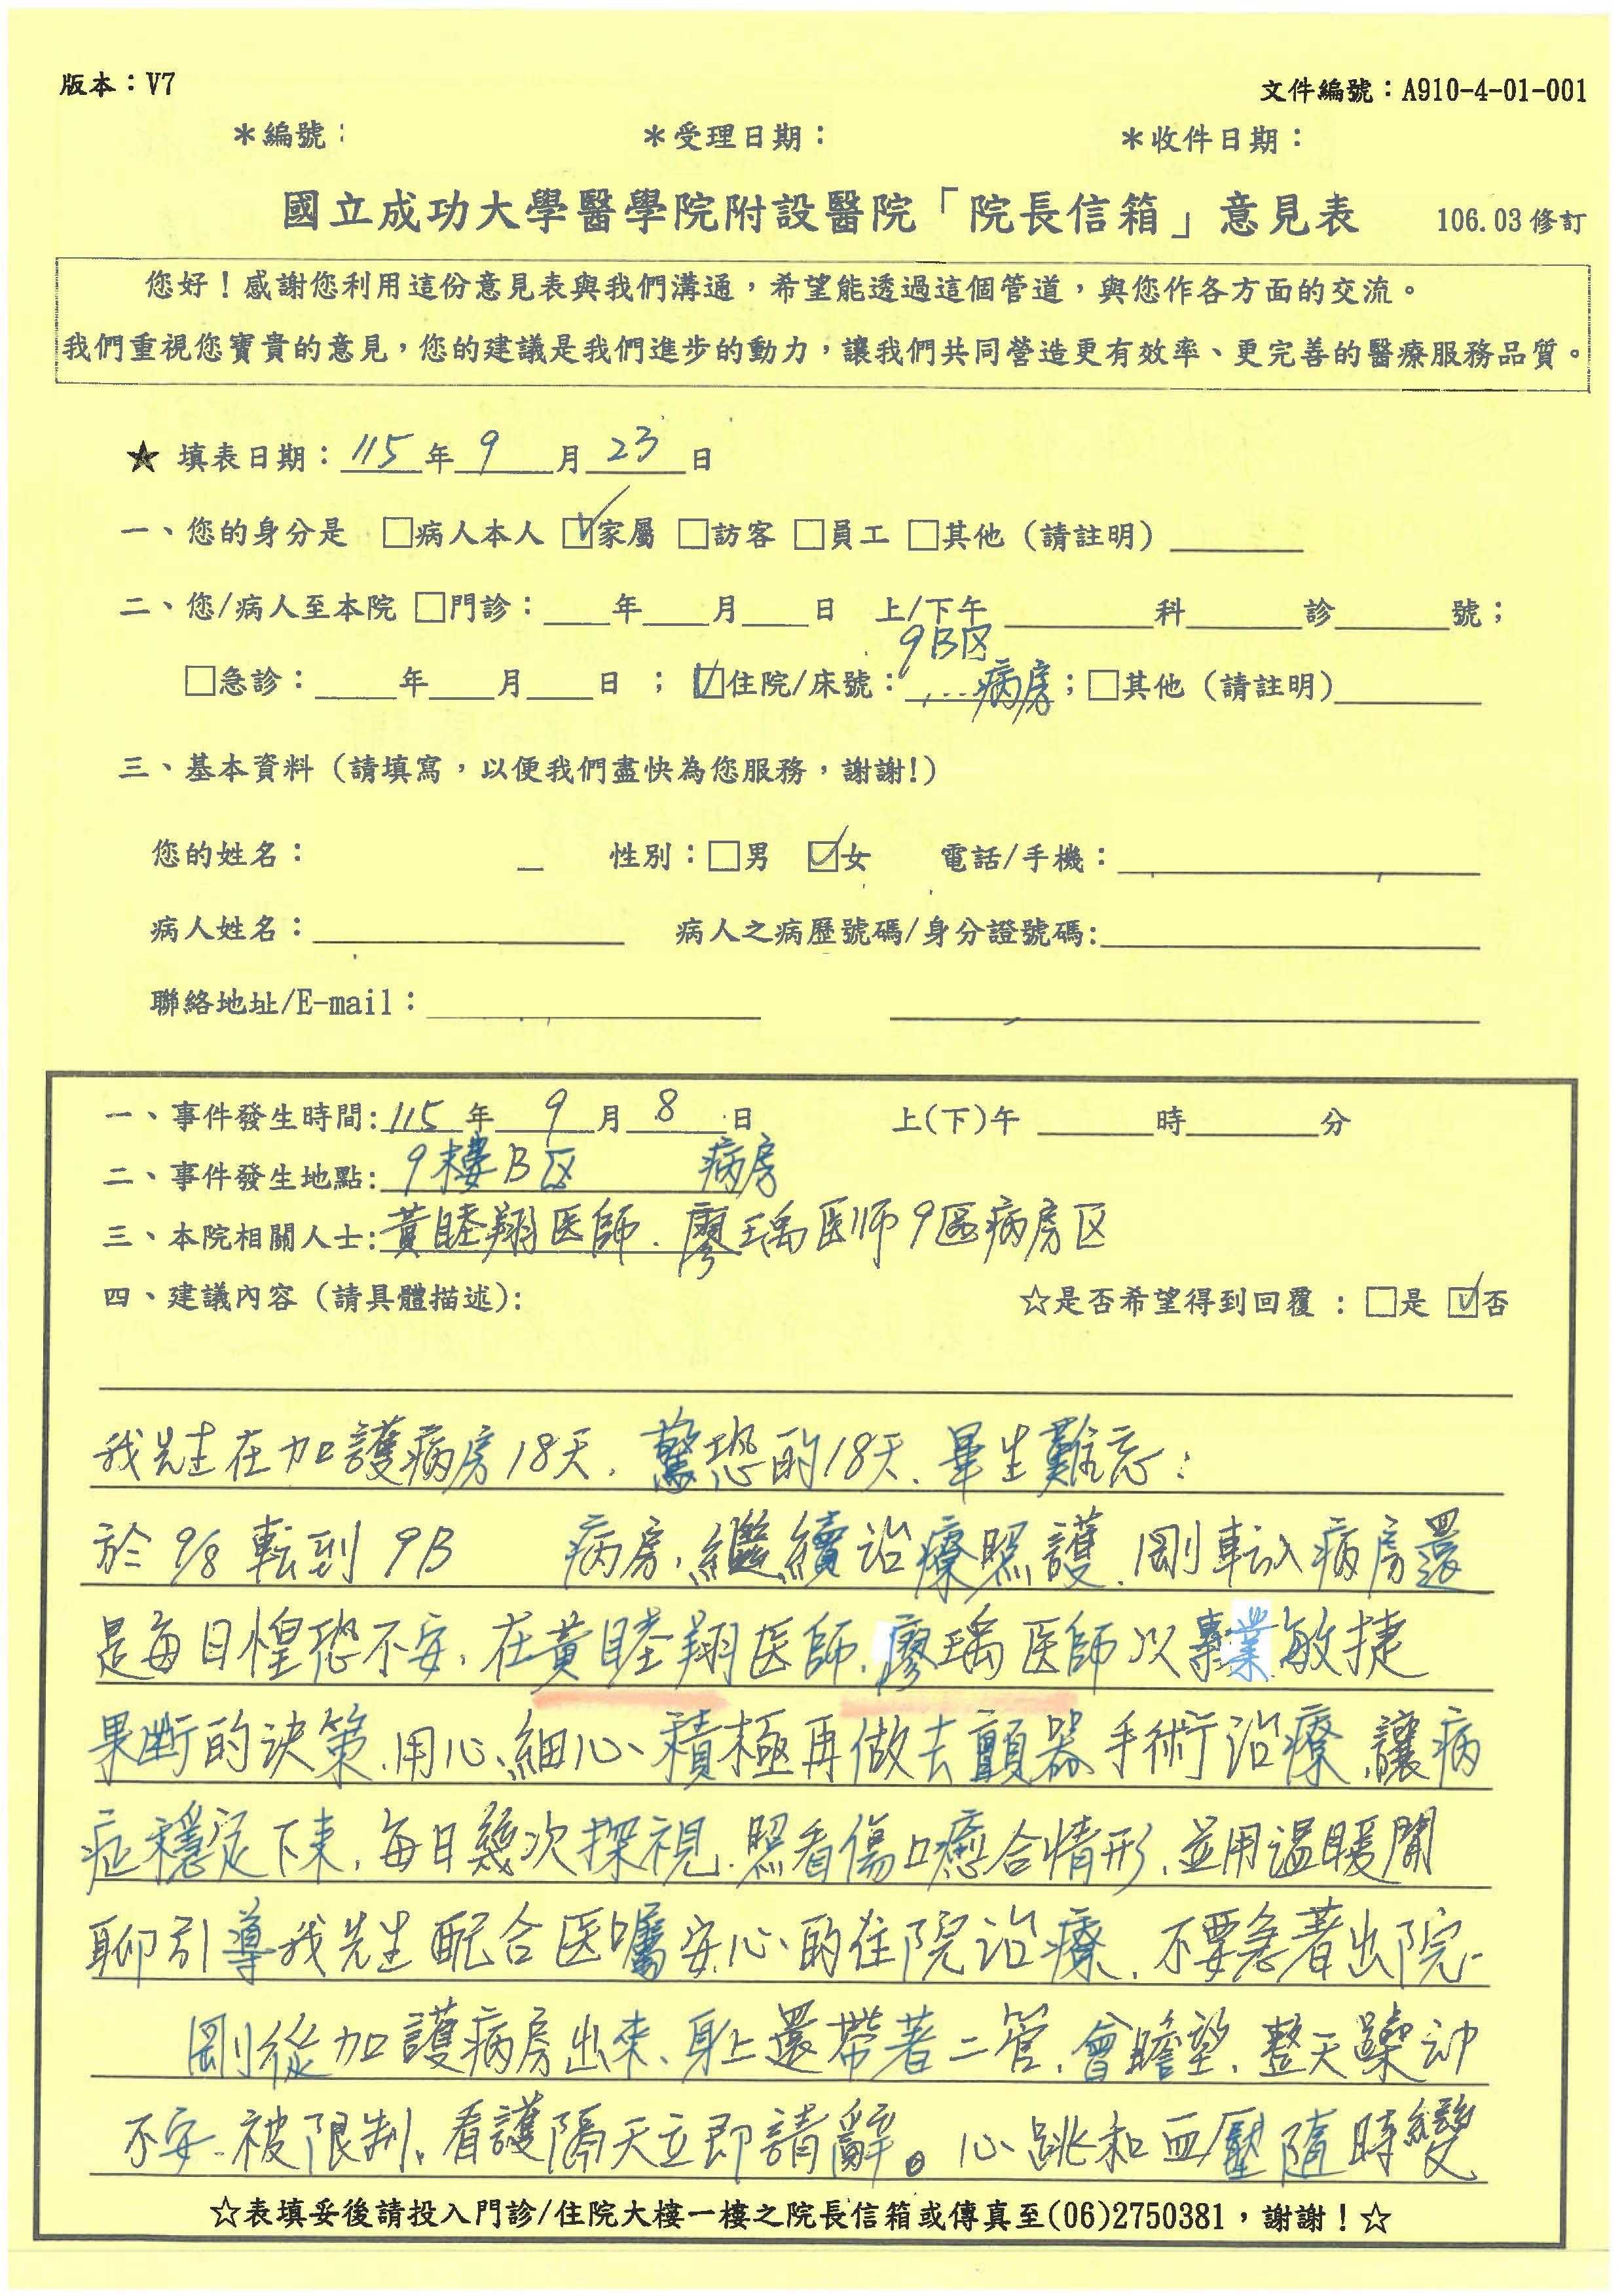 版本：V7
文件編號：A910-4-01-001
＊編號：
＊受理日期：
＊收件日期：
國立成功大學醫學院附設醫院「院長信箱」意見表 106.03修訂
您好！感謝您利用這份意見表與我們溝通，希望能透過這個管道，與您作各方面的交流。
我們重視您寶貴的意見，您的建議是我們進步的動力，讓我們共同營造更有效率、更完善的醫療服務品質。
★ 填表日期：115年9月23日
一、您的身分是 □病人本人 ☑家屬 □訪客 □員工 □其他（請註明）
二、您/病人至本院 □門診：年月日 上/下午 科 診 號；
9B区
□急診：年月日；☑住院/床號：病房；□其他（請註明）
三、基本資料（請填寫，以便我們盡快為您服務，謝謝!）
您的姓名： 性別：□男 ☑女 電話/手機：
病人姓名： 病人之病歷號碼/身分證號碼:
聯絡地址/E-mail：
一、事件發生時間:115年9月8日 上(下)午 時 分
二、事件發生地點:9樓B区 病房
三、本院相關人士:黃睦翔医師、廖瑀医师9區病房区
四、建議內容（請具體描述): ☆是否希望得到回覆：□是 ☑否
我先生在加護病房18天、驚恐的18天、畢生難忘：
於9/8転到9B 病房，繼續治療照護、剛転入病房還
是每日惶恐不安，在黃睦翔医師、廖瑀医師以專業敏捷
果断的決策、用心、細心、積極再做去顫器手術治療、讓病
症穩定下來，每日幾次探視、照看傷口癒合情形、並用溫暖閒
聊引導我先生配合医囑安心的住院治療、不要急著出院、
剛從加護病房出來、身上還帶著二管、會瞻望、整天躁动
不安、被限制、看護隔天立即請辭。心跳和血壓隨時變
☆表填妥後請投入門診/住院大樓一樓之院長信箱或傳真至(06)2750381，謝謝！☆